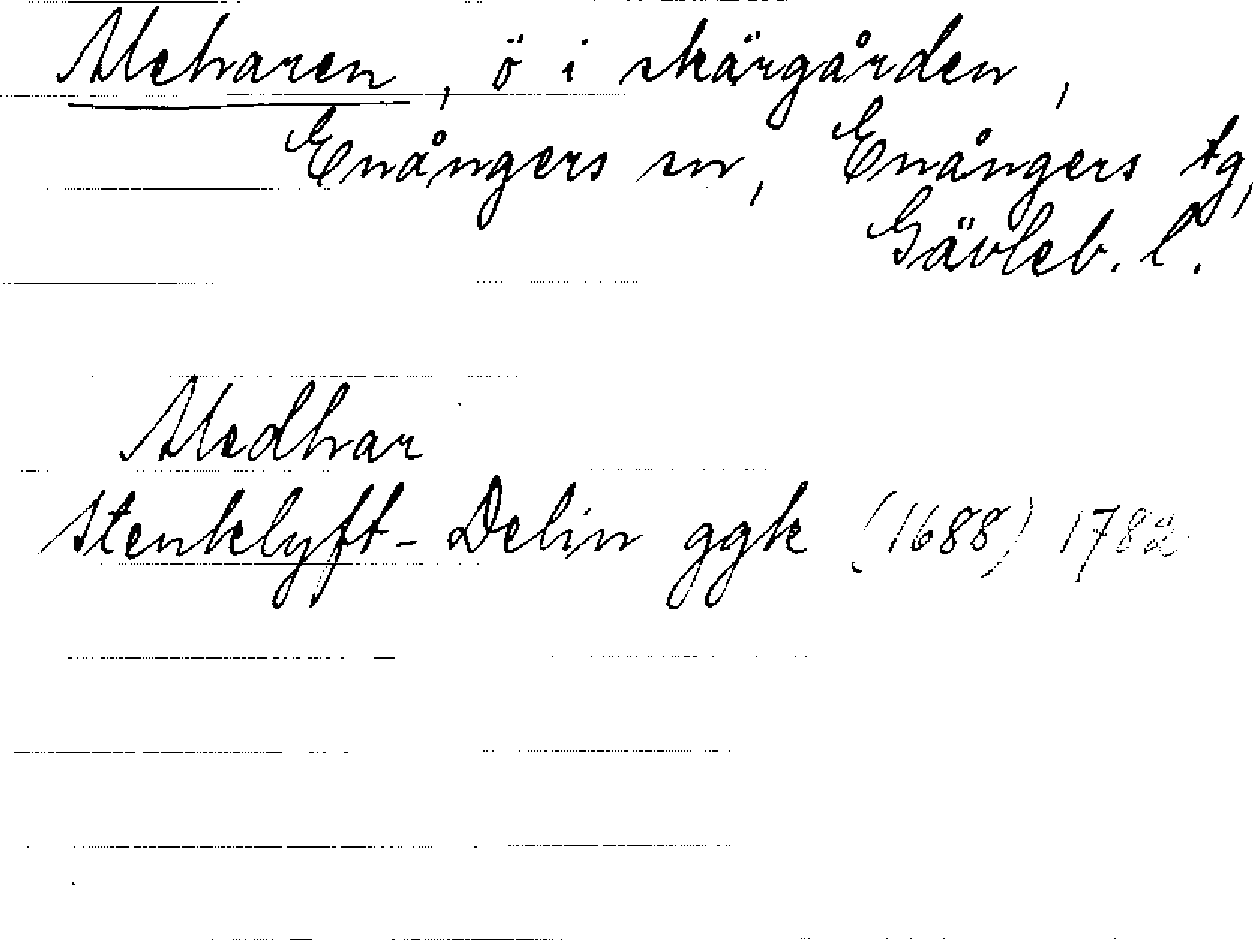 Meharen, ö i skärgården,
Enångers sn, Enångers tg,
Gävleb. l.
Medhar
Stenklyft-Delin ggk (1688) 1782